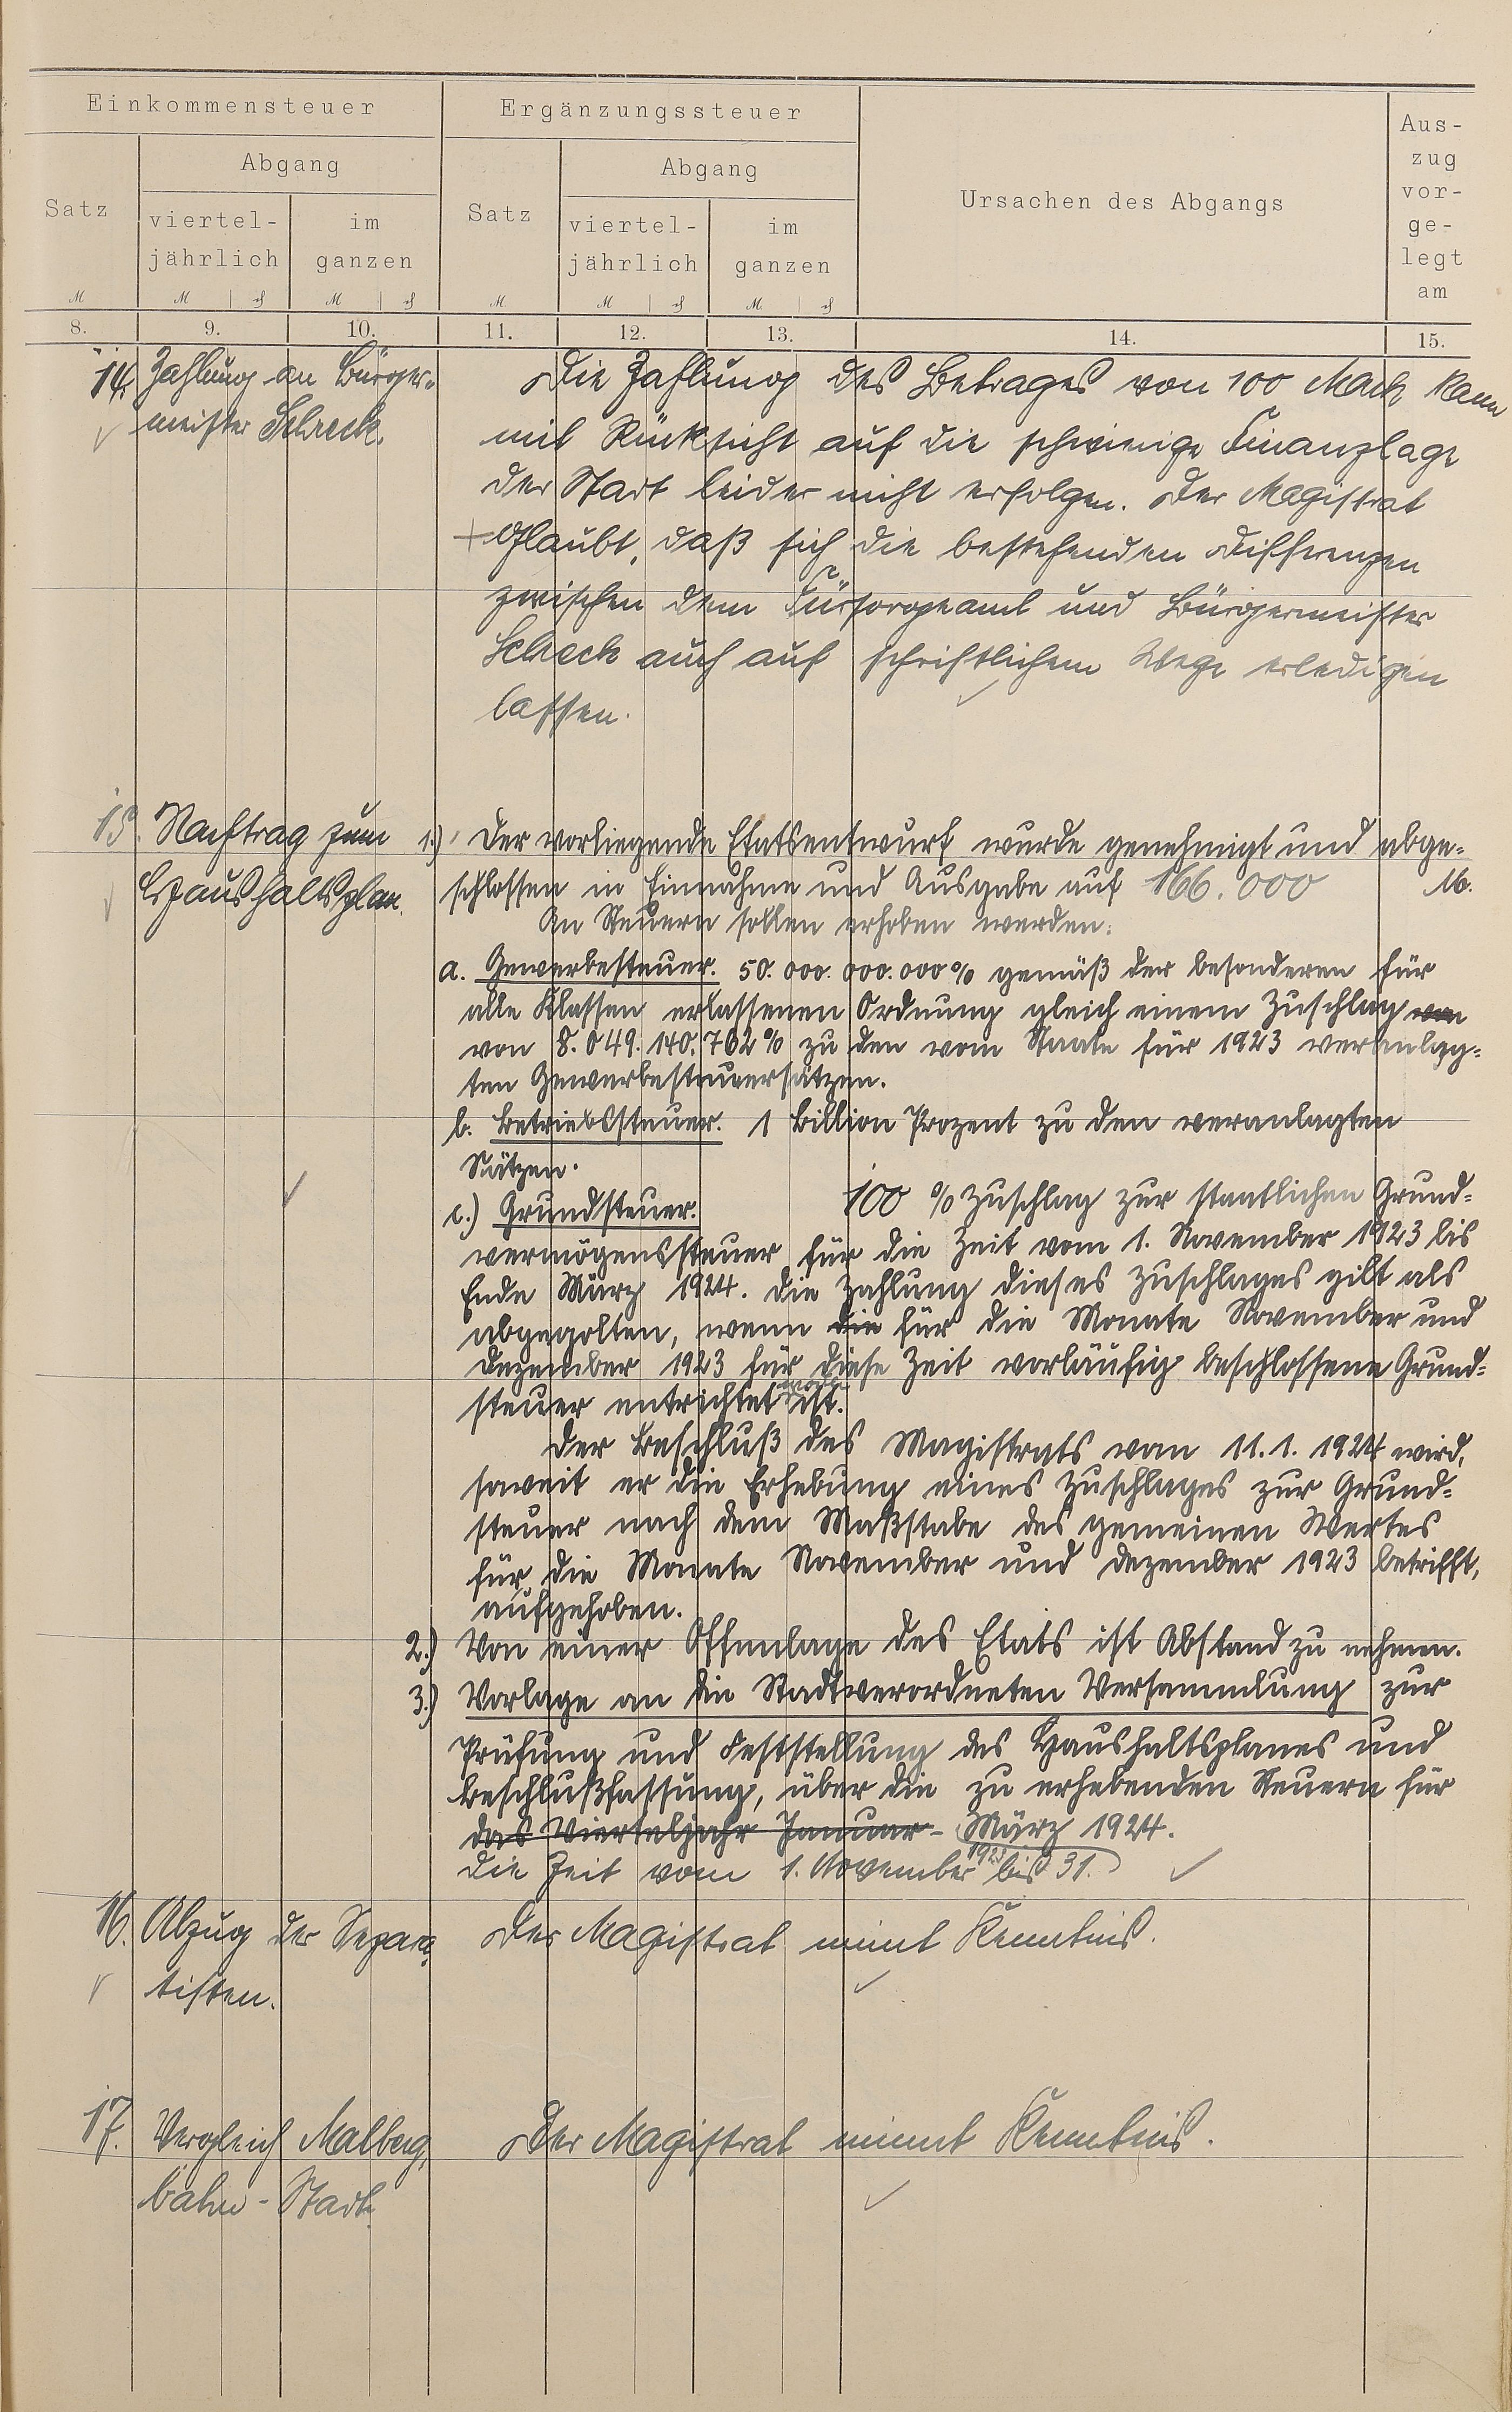 Einkommensteuer
Ergänzungssteuer
Ursachen des Abgangs
Aus-
zug
vor-
ge-
legt
am
Satz
Abgang
viertel-
jährlich
im
ganzen
Satz
Abgang
viertel-
jährlich
im
ganzen
M
M
M
M
M
M
8.
9.
10.
11.
12.
13.
14.
15.
14. Zahlung an Bürger-
meister Scheck.
Die Zahlung des Betrages von 100 Mark kann
mit Rücksicht auf die schwierige Finanzlage
der Stadt leider nicht erfolgen. Der Magistrat
glaubt, daß sich die bestehenden Differenzen
zwischen dem Fürsorgeamt und Bürgermeister
Scheck auch auf schriftlichem Wege erledigen
lassen.
15. Nachtrag zum
Haushaltsplan.
1.) Der vorliegende Etatsentwurf wurde genehmigt und abge-
schlossen in Einnahme und Ausgabe auf 166.000 M.
An Steuern sollen erhoben werden:
a. Gewerbesteuer. 50.000.000.000% gemäß der besonderen für
alle Klassen erlassenen Ordnung gleich einem Zuschlag von
von 8.049.140.762% zu den vom Staate für 1923 veranlag-
ten Gewerbesteuersätzen.
b. Betriebssteuer. 1 Billion Prozent zu den veranlagten
Sätzen.
c.) Grundsteuer. 100 % Zuschlag zur staatlichen Grund-
vermögenssteuer für die Zeit vom 1. November 1923 bis
Ende März 1924. Die Zahlung dieses Zuschlages gilt als
abgegolten, wenn die für die Monate November und
Dezember 1923 für diese Zeit vorläufig beschlossene Grund-
steuer entrichtet ist.
Der Beschluß des Magistrats vom 11.1.1924 wird,
soweit er die Erhebung eines Zuschlages zur Grund-
steuer nach dem Maßstabe des gemeinen Wertes
für die Monate November und Dezember 1923 betrifft,
aufgehoben.
2.) Von einer Offenlage des Etats ist Abstand zu nehmen.
3.) Vorlage an die Stadtverordneten Versammlung zur
Prüfung und Feststellung des Haushaltsplanes und
Beschlußfassung, über die zu erhebenden Steuern für
das Vierteljahr Januar - März 1924.
die Zeit vom 1. November 1923 bis 31.
16. Abzug der Separa-
tisten.
Der Magistrat nimmt Kenntnis.
17. Vergleich Malberg-
bahn - Stadt.
Der Magistrat nimmt Kenntnis.